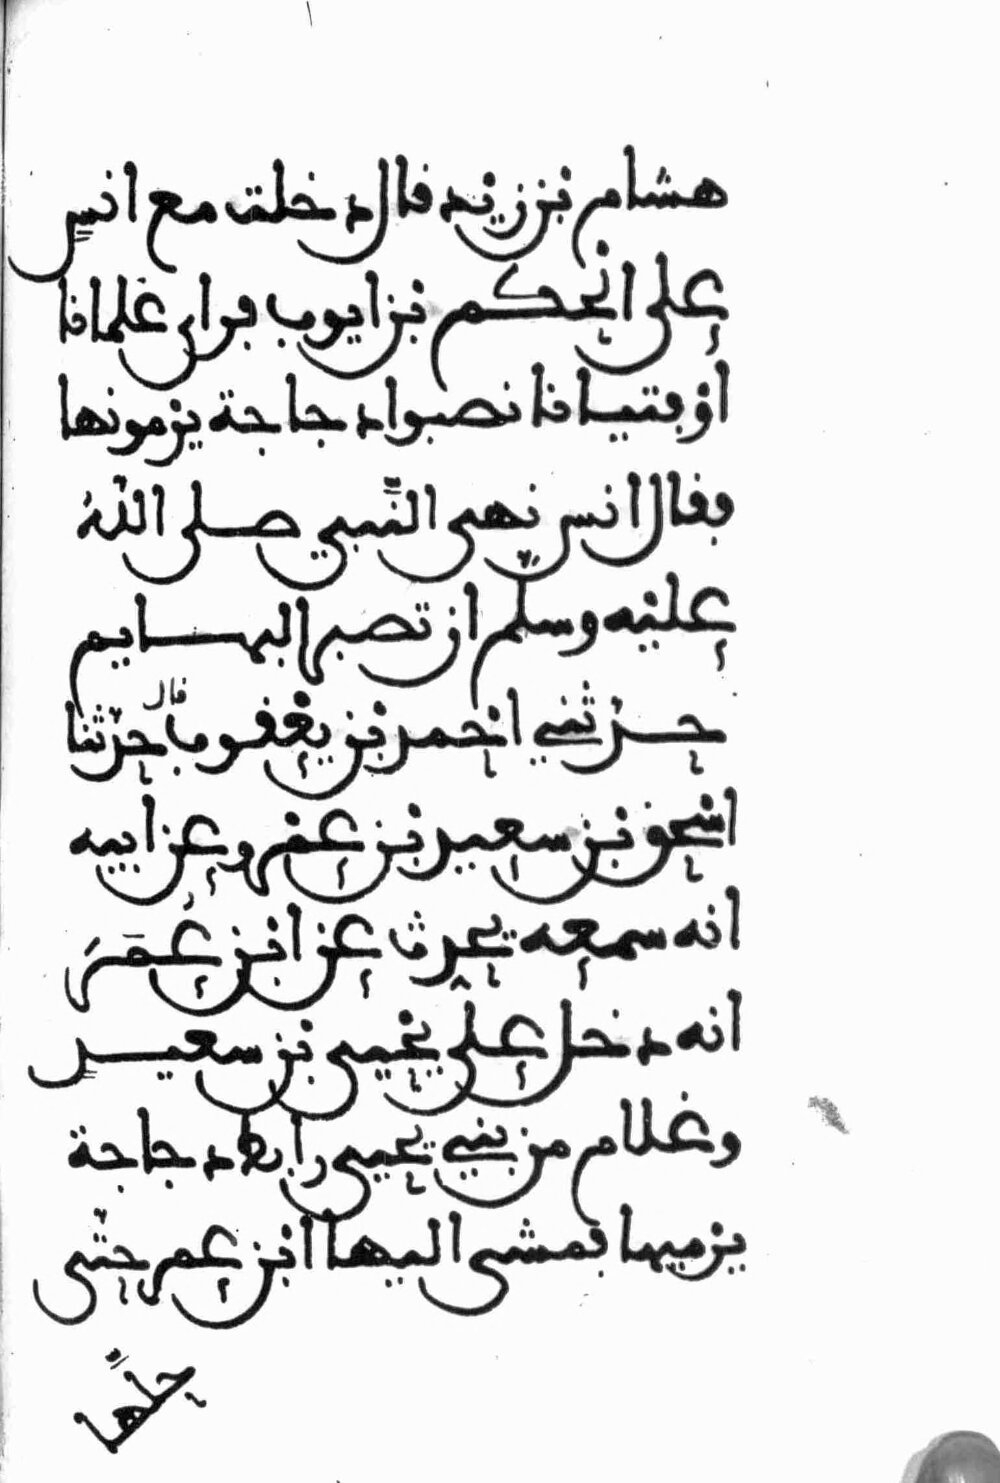 هشام بن زيد قال دخلت مع انس
على الحكم بن ايوب فراى غلمانا
او فتيانا نصبوا دجاجة يرمونها
فقال انس نهى النبي صلى الله
عليه وسلم ان تصبر البهايم
حدثني احمد بن يعقوب قال حدثنا
اسحق بن سعيد بن عمرو عن ابيه
انه سمعه يحدث عن ابن عمر
انه دخل على يحيى بن سعيد
وغلام من بني يحيى رابط دجاجة
يرميها فمشى اليها ابن عمر حتى
حلها